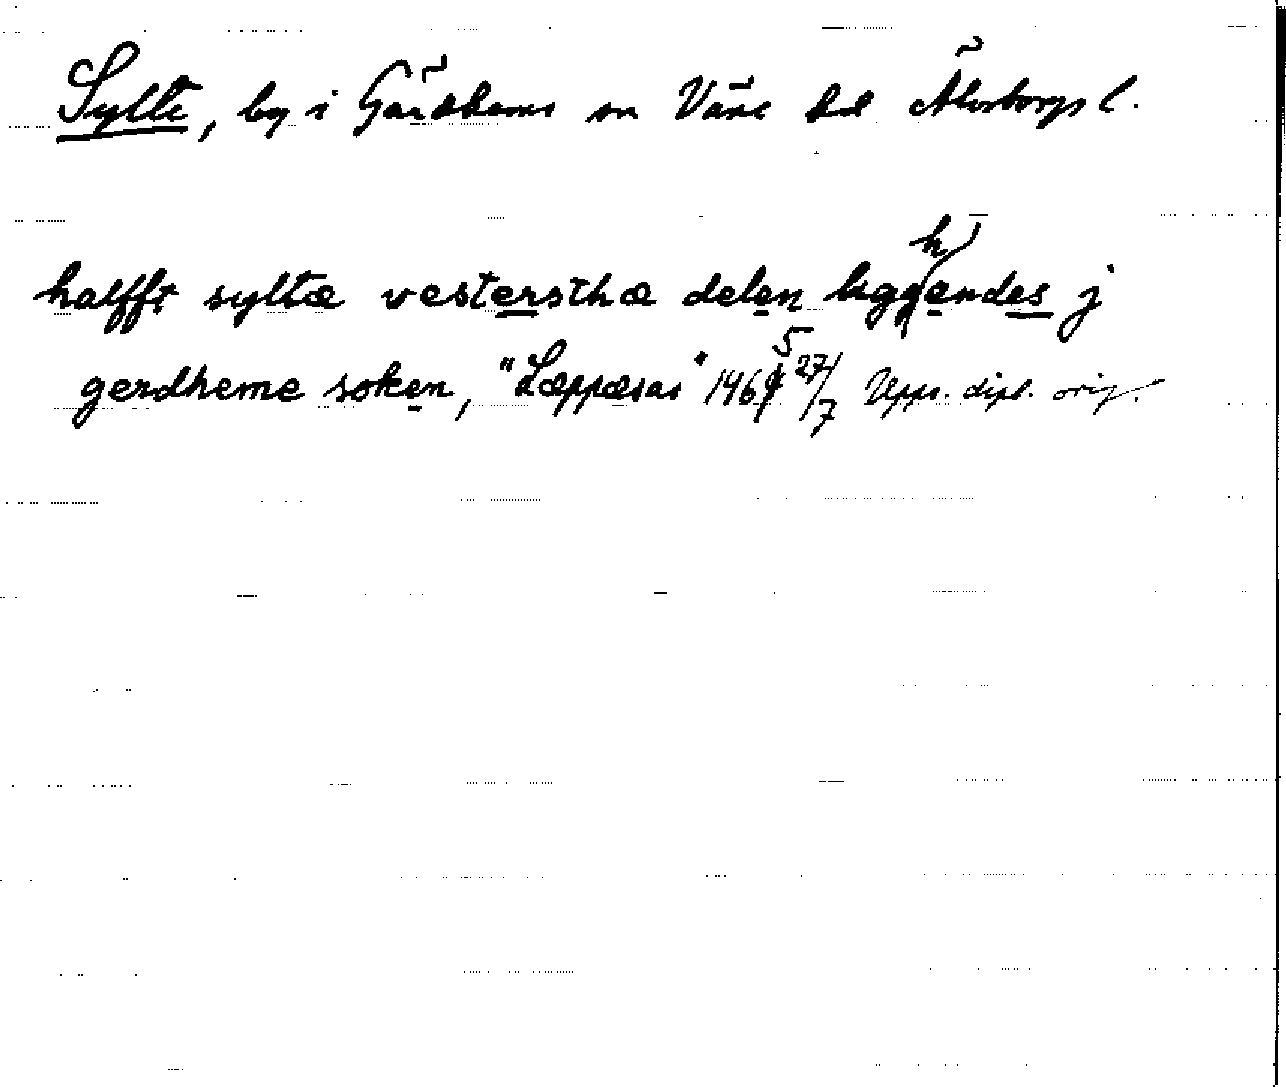 Sylte, by i Gärdhems sn Väne hd Älvsborgs l.
halfft syltæ vestersthæ delenligghendes j
gerdheme soken, "Læppæsas" 1465 27/7 Upps. dipl. orig.